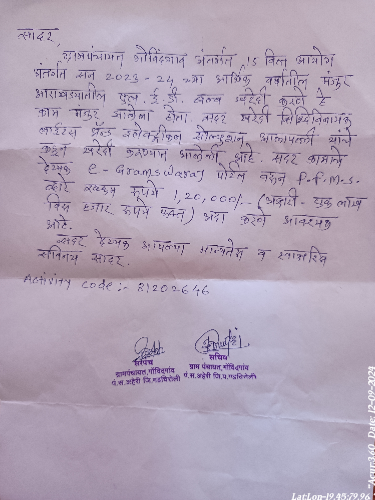 सादर,
ग्रामपंचायत गोविंदगाव अंतर्गत 15 वित्त आयोग
अंतर्गत सन 2023-24 च्या आर्थिक वर्षातील मंजूर
आराखड्यातील एल.ई.डी. बल्ब खरेदी करणे हे
काम मंजूर झालेला होता. सदर खरेदी सिद्धिविनायक
लाईटस अँन्ड इलेक्ट्रीकल सोल्युशन आलापल्ली यांचे
कडून खरेदी करण्यात आलेली आहे. सदर कामाचे
देयक e-Gramswaraj पोर्टल वरून P.F.M.S.
व्दारे रक्कम रूपये 1,20,000/- (अक्षरी- एक लाख
विस हजार रूपये फक्त) अदा करणे आवश्यक
आहे.
सदर देयक आपल्या मान्यतेस व स्वाक्षरीस
सविनय सादर.
Activity code :- 81202646
सरपंच
ग्रामपंचायत,गोविंदगांव
पं.स.अहेरी जि.गडचिरोली
सचिव
ग्राम पंचायत,गोविंदगांव
पं.स.अहेरी जि.प.गडचिरोली
Acur:3.e0 Date:12-09-2023
LatLon-19.45:79.96